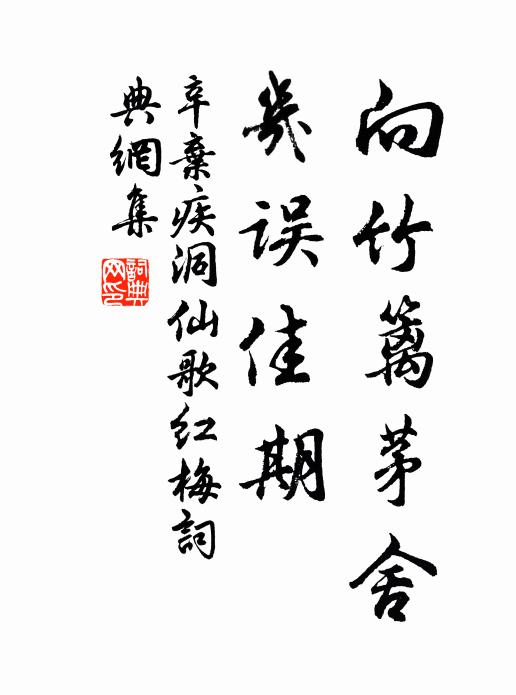 向竹篱茅舍
几误佳期
辛棄疾洞仙歌红梅詞
典網集
詞典网印